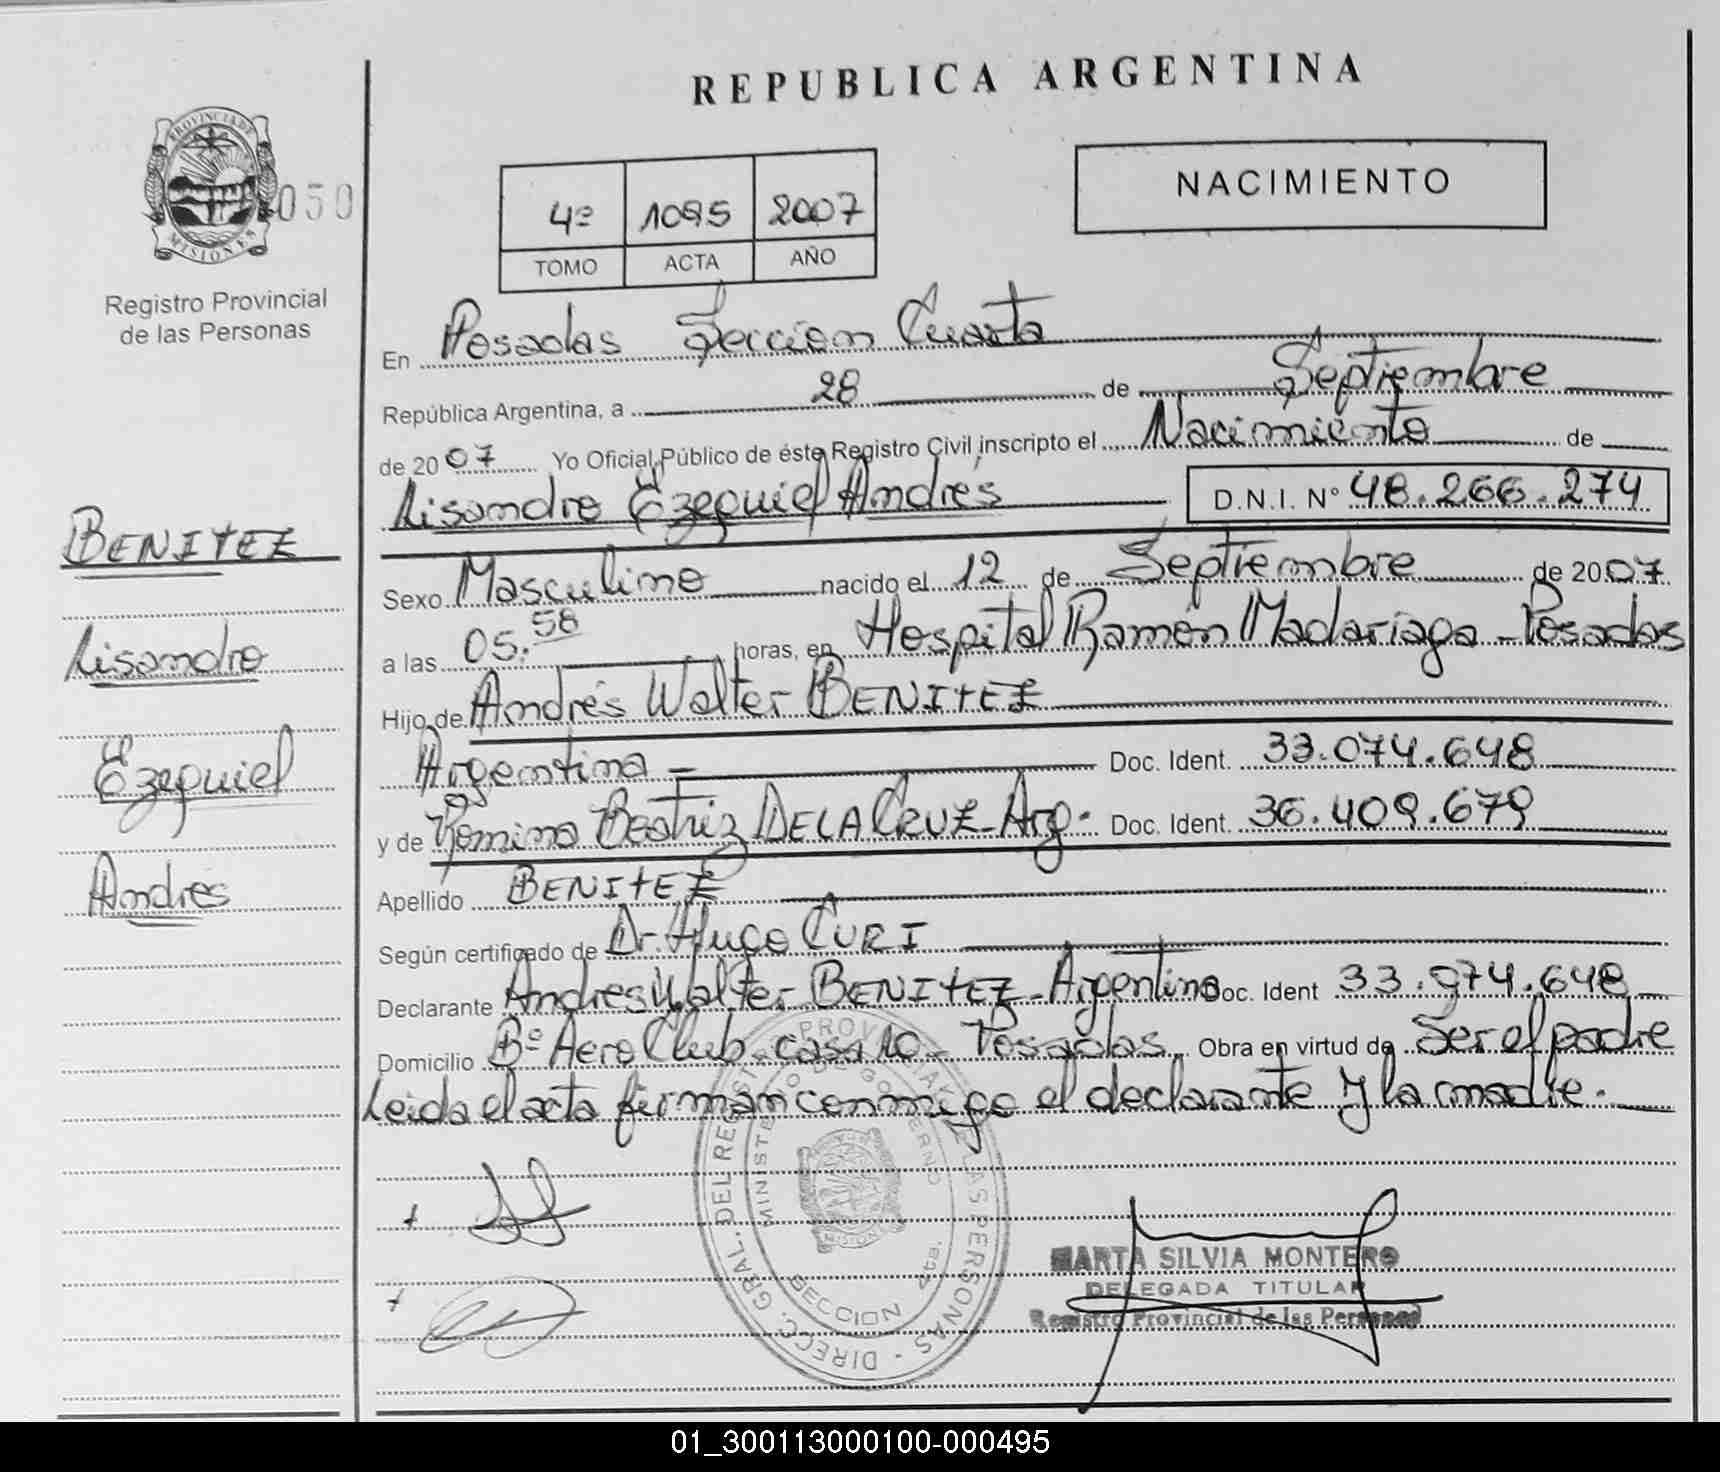 REPUBLICA ARGENTINA
PROVINCIA DE MISIONES
050
Registro Provincial
de las Personas
4º 1095 2007
TOMO ACTA AÑO
NACIMIENTO
En Posadas Seccion Cuarta
República Argentina, a 28 de Septiembre
de 2007 Yo Oficial Público de éste Registro Civil inscripto el Nacimiento de
Lisandro Ezequiel Andrés D.N.I. Nº 48.266.274
BENITEZ
Lisandro
Ezequiel
Andrés
Sexo Masculino nacido el 12 de Septiembre de 2007
a las 05.58 horas, en Hospital Ramón Madariaga - Posadas
Hijo de Andrés Walter BENITEZ
Argentina - Doc. Ident. 33.074.648
y de Romina Beatriz DE LA CRUZ - Arg. Doc. Ident. 36.409.679
Apellido BENITEZ
Según certificado de Dr. Hugo CURI
Declarante Andres Walter BENITEZ - Argentino Doc. Ident 33.974.648
Domicilio Bº Aero Club - casa 10 - Posadas Obra en virtud de Ser el padre
Leida el acta firman conmigo el declarante y la madre.
DIRECC. GRAL. DEL REGISTRO PROV. DE LAS PERSONAS
MINISTERIO DE GOBIERNO
MISIONES
SECCION 4ta.
MARTA SILVIA MONTERO
DELEGADA TITULAR
Registro Provincial de las Personas
01_300113000100-000495